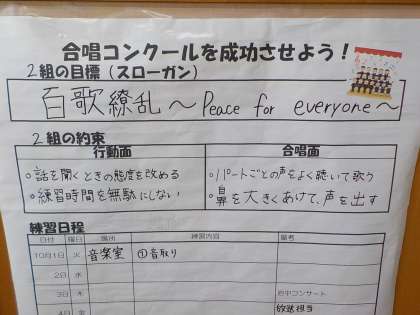 合唱コンクールを成功させよう！
2組の目標（スローガン）
百歌繚乱～Peace for everyone～
2組の約束
行動面 合唱面
○話を聞くときの態度を改める ○パートごとの声をよく聴いて歌う
○練習時間を無駄にしない ○鼻を大きくあけて、声を出す
練習日程
日付 曜日 場所 練習内容 備考
10月1日 火 音楽室 ①音取り
2日 水
3日 木 府中コンサート
4日 金 放送担当